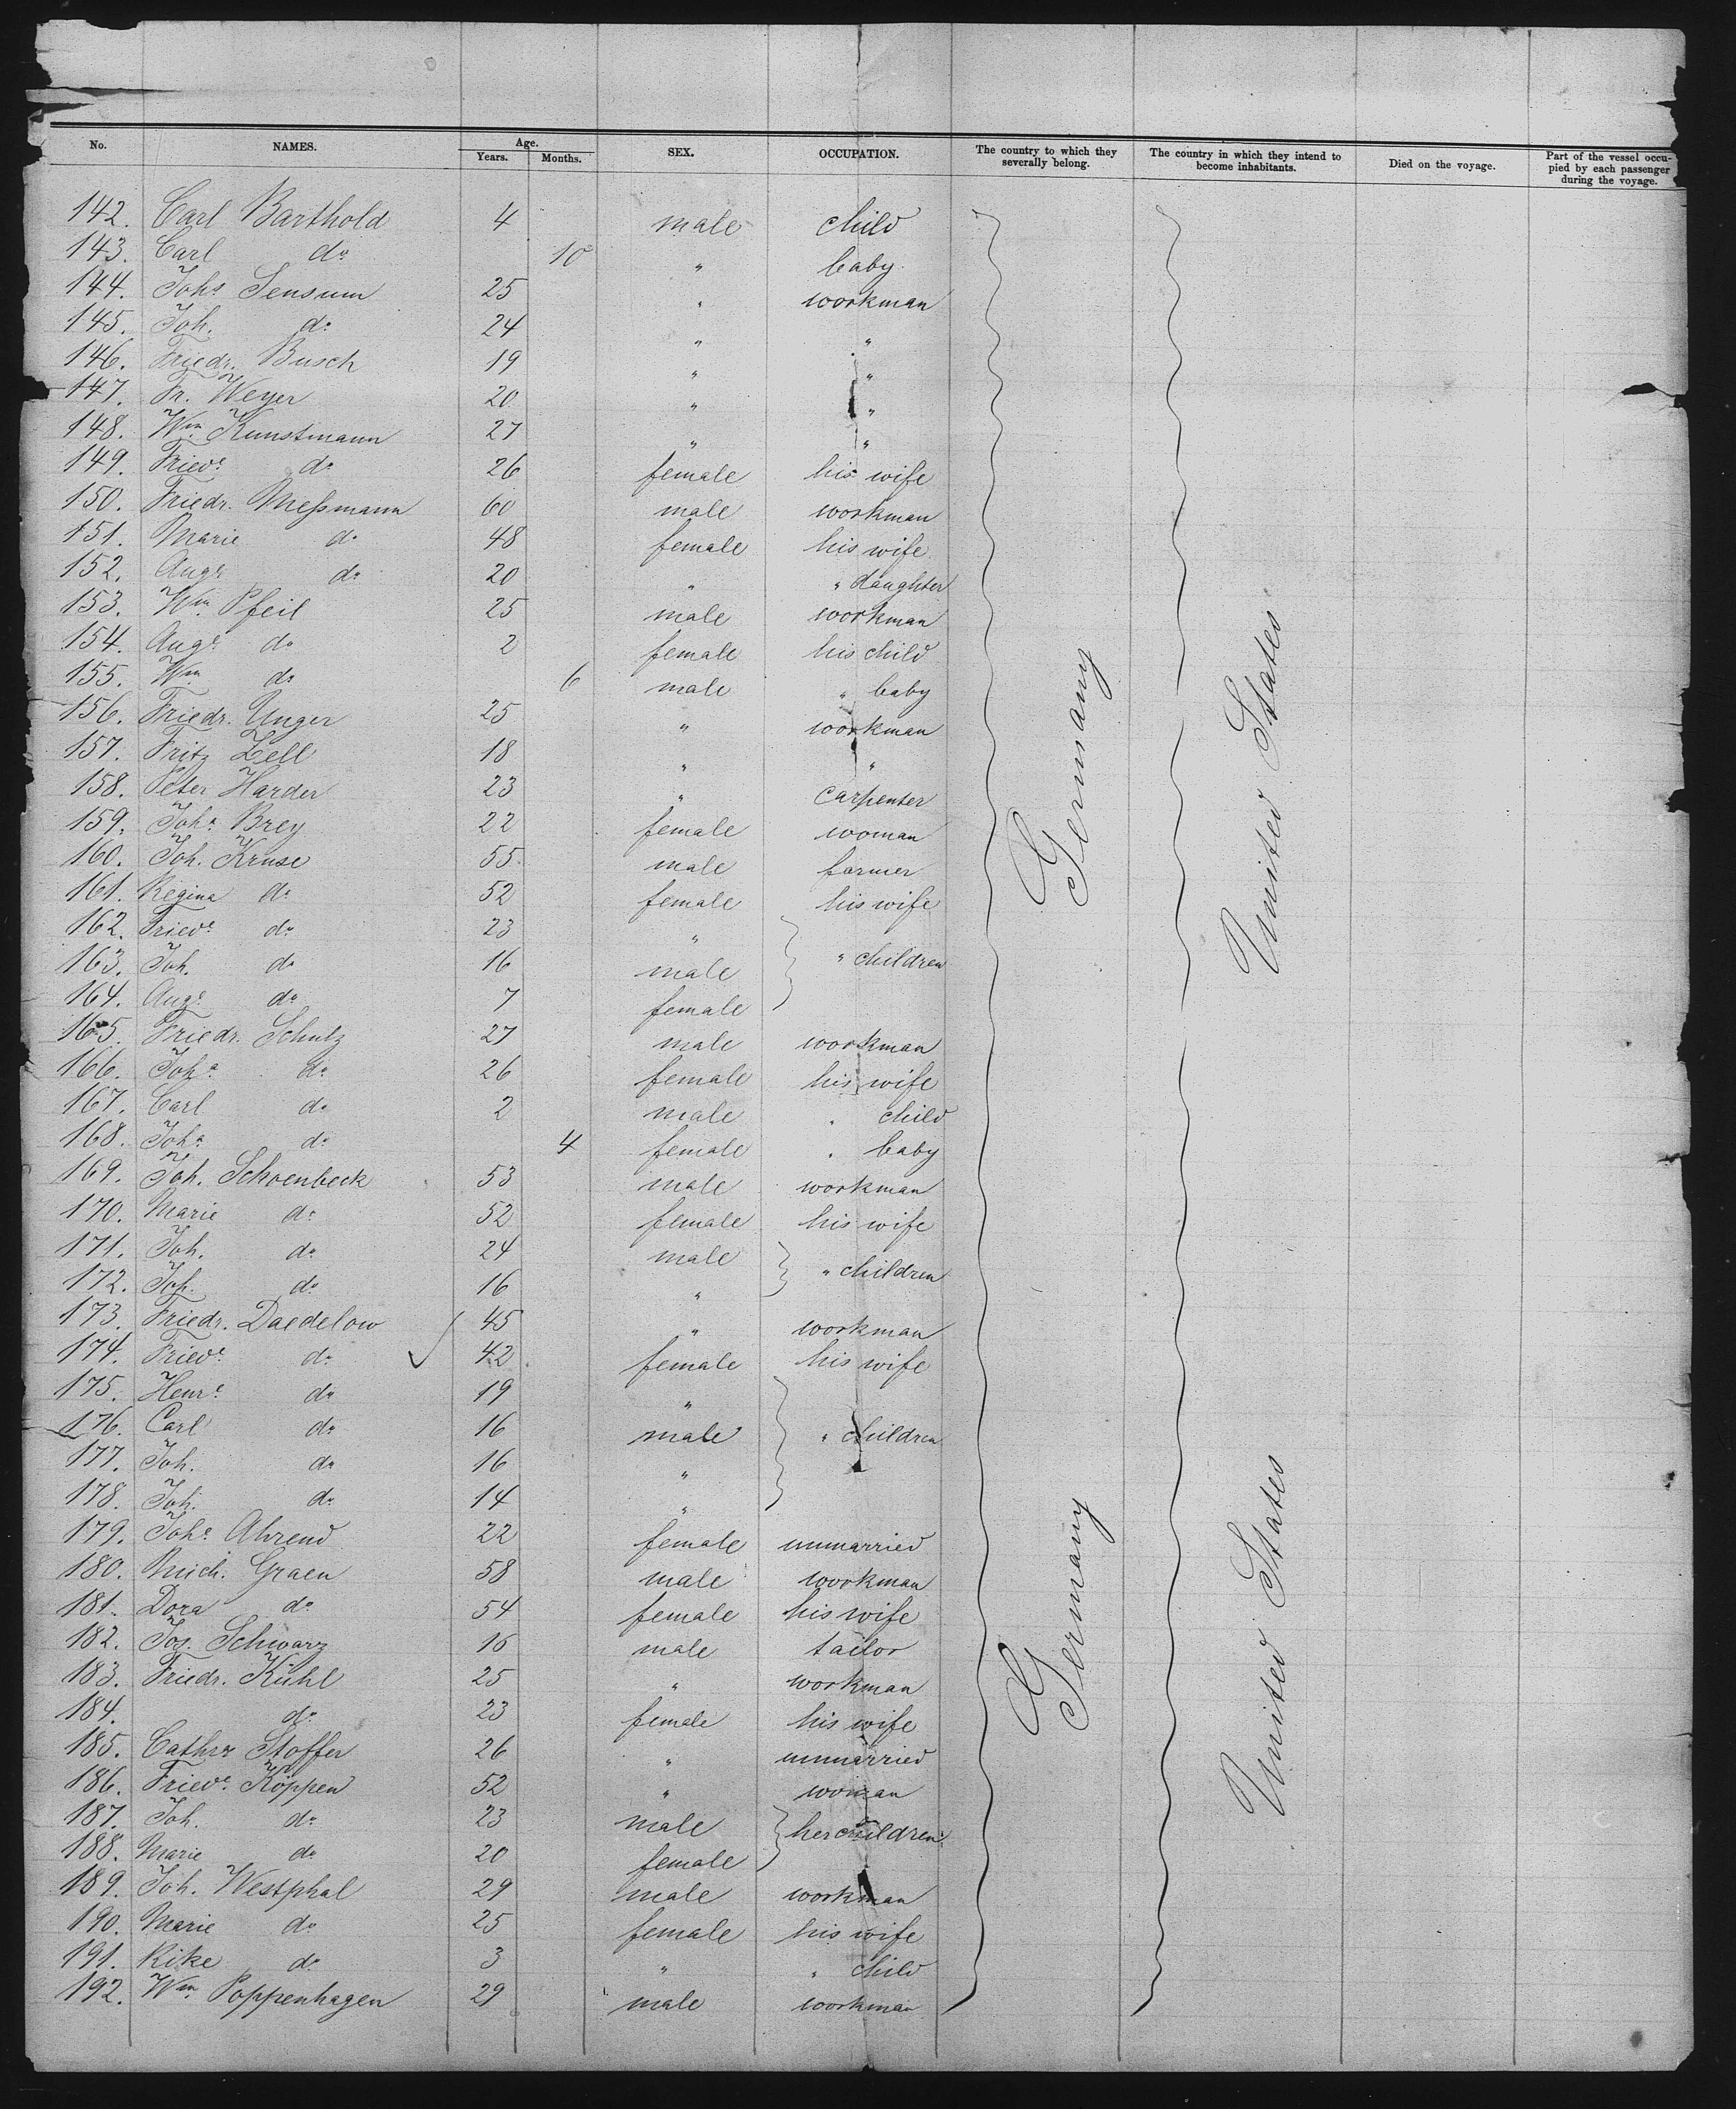 No. NAMES. Age. Years. Months. SEX. OCCUPATION. The country to which they severally belong. The country in which they intend to become inhabitants. Died on the voyage. Part of the vessel occupied by each passenger during the voyage.
142. Carl Barthold 4 male child
143. Carl do 10 " baby
144. Johs Sensum 25 " workman
145. Joh. do 24 " "
146. Friedr. Busch 19 " "
147. Fr. Weyer 20 " "
148. Wm Kunstmann 27 " "
149. Friede do 26 female his wife
150. Friedr. Meßmann 60 male workman
151. Marie do 48 female his wife
152. Auge do 20 " " daughter
153. Wm Pfeil 25 male workman
154. Auge do 2 female his child
155. Wm do 6 male " baby
156. Friedr. Unger 25 " workman
157. Fritz Zell 18 " "
158. Peter Harder 23 " carpenter
159. Joha Brey 22 female woman
160. Joh. Kruse 55 male farmer
161. Regina do 52 female his wife
162. Friede do 23 "
163. Joh. do 16 male " children
164. Auge do 7 female
165. Friedr. Schulz 27 male workman
166. Joha do 26 female his wife
167. Carl do 2 male " child
168. Joha do 4 female " baby
169. Joh. Schoenbeck 53 male workman
170. Marie do 52 female his wife
171. Joh. do 24 male
172. Joh. do 16 " " children
173. Friedr. Daedelow 45 " workman
174. Friede do 42 female his wife
175. Henre do 19 "
176. Carl do 16 male " children
177. Joh. do 16 "
178. Joh. do 14 "
179. Johe Ahrend 22 female unmarried
180. Mich. Graen 58 male workman
181. Dora do 54 female his wife
182. Jos. Schwarz 16 male tailor
183. Friedr. Kühl 25 " workman
184. do 23 female his wife
185. Cathr Stoffer 26 " unmarried
186. Friede Köppen 52 " woman
187. Joh. do 23 male her children
188. Marie do 20 female
189. Joh. Westphal 29 male workman
190. Marie do 25 female his wife
191. Rike do 3 " " child
192. Wm Poppenhagen 29 male workman
Germany
United States
Germany
United States